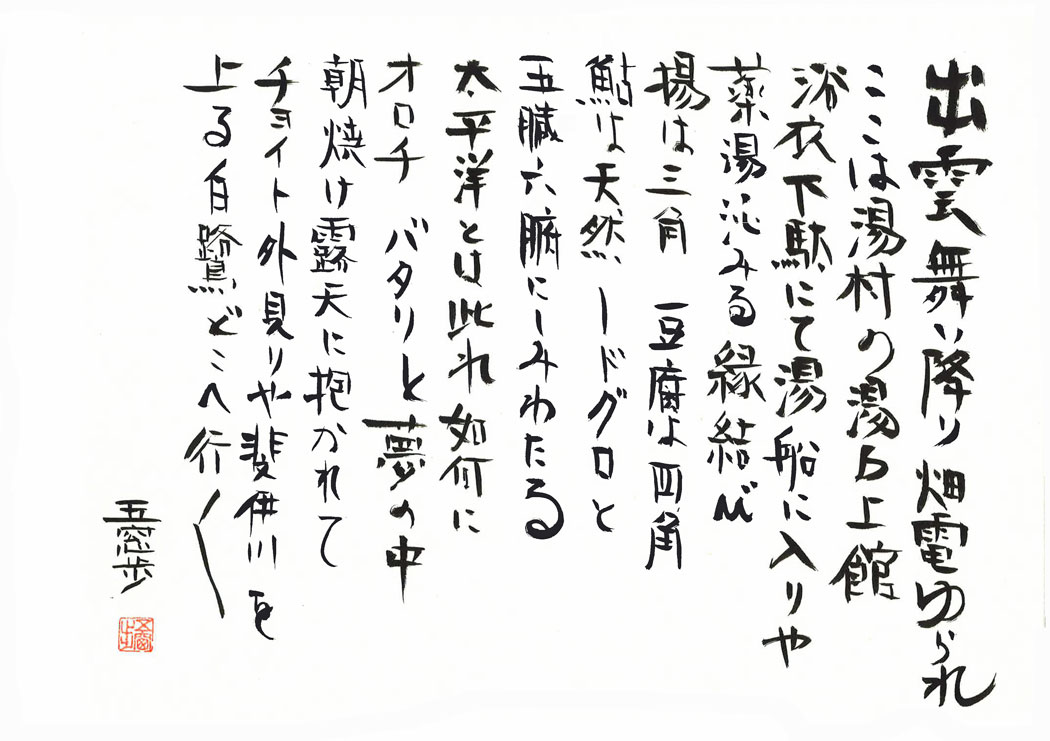 出雲舞い降り畑電ゆられ
ここは湯村の湯乃上館
浴衣下駄にて湯船に入りや
薬湯沁みる縁結び
揚は三角 豆腐は四角
鮎は天然 ードグロと
五臓六腑にしみわたる
太平洋とは此れ如何に
オロチ バタリと夢の中
朝焼け露天に抱かれて
チョイト外見りや斐伊川を
上る白鷺どこへ行く
五窓歩